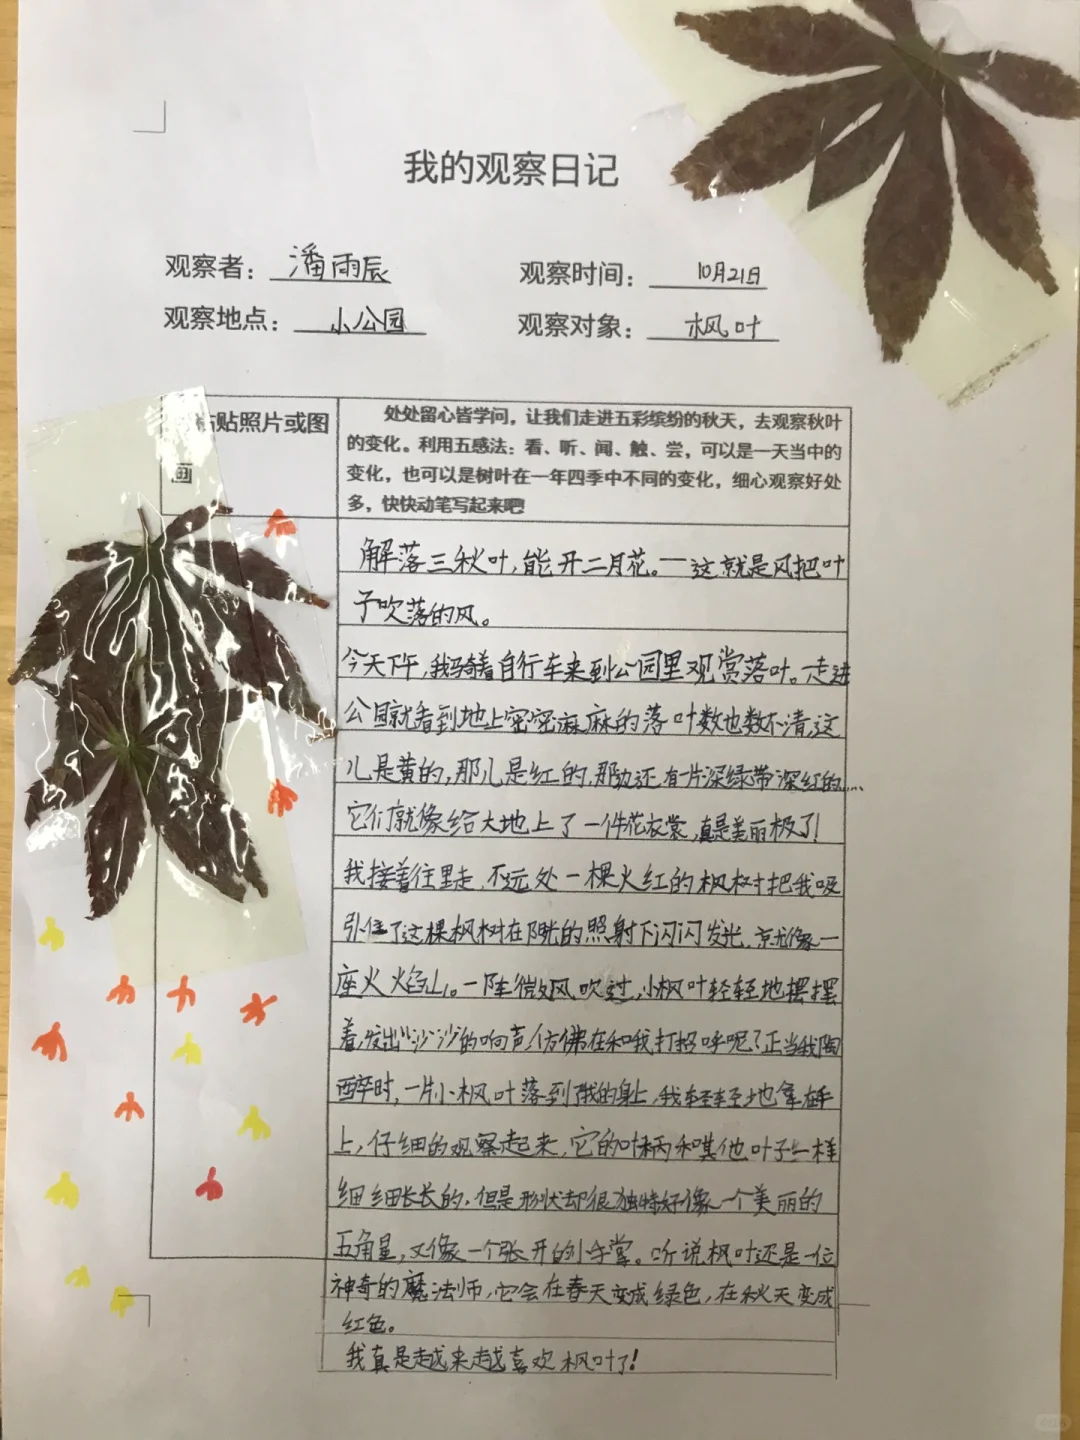 我的观察日记
观察者：潘雨辰
观察时间：10月21日
观察地点：小公园
观察对象：枫叶
粘贴照片或图
画
处处留心皆学问，让我们走进五彩缤纷的秋天，去观察秋叶
的变化。利用五感法：看、听、闻、触、尝，可以是一天当中的
变化，也可以是树叶在一年四季中不同的变化，细心观察好处
多，快快动笔写起来吧!
解落三秋叶，能开二月花。一这就是风把叶
子吹落的风。
今天下午，我骑着自行车来到公园里观赏落叶。走进
公园就看到地上密密麻麻的落叶数也数不清，这
儿是黄的，那儿是红的，那边还有一片深绿带深红的……
它们就像给大地上了一件花衣裳，真是美丽极了!
我接着往里走，不远处一棵火红的枫树把我吸
引住了这棵枫树在阳光的照射下闪闪发光，就像一
座火焰山。一阵微风吹过，小枫叶轻轻地摆摆
着，发出“沙沙”的响声，仿佛在和我打招呼呢？正当我陶
醉时，一片小枫叶落到我的身上，我轻轻地拿在手
上，仔细的观察起来，它的叶柄和其他叶子一样
细细长长的，但是形状却很独特好像一个美丽的
五角星，又像一个张开的小手掌。听说枫叶还是一位
神奇的魔法师，它会在春天变成绿色，在秋天变成
红色。
我真是越来越喜欢枫叶了!